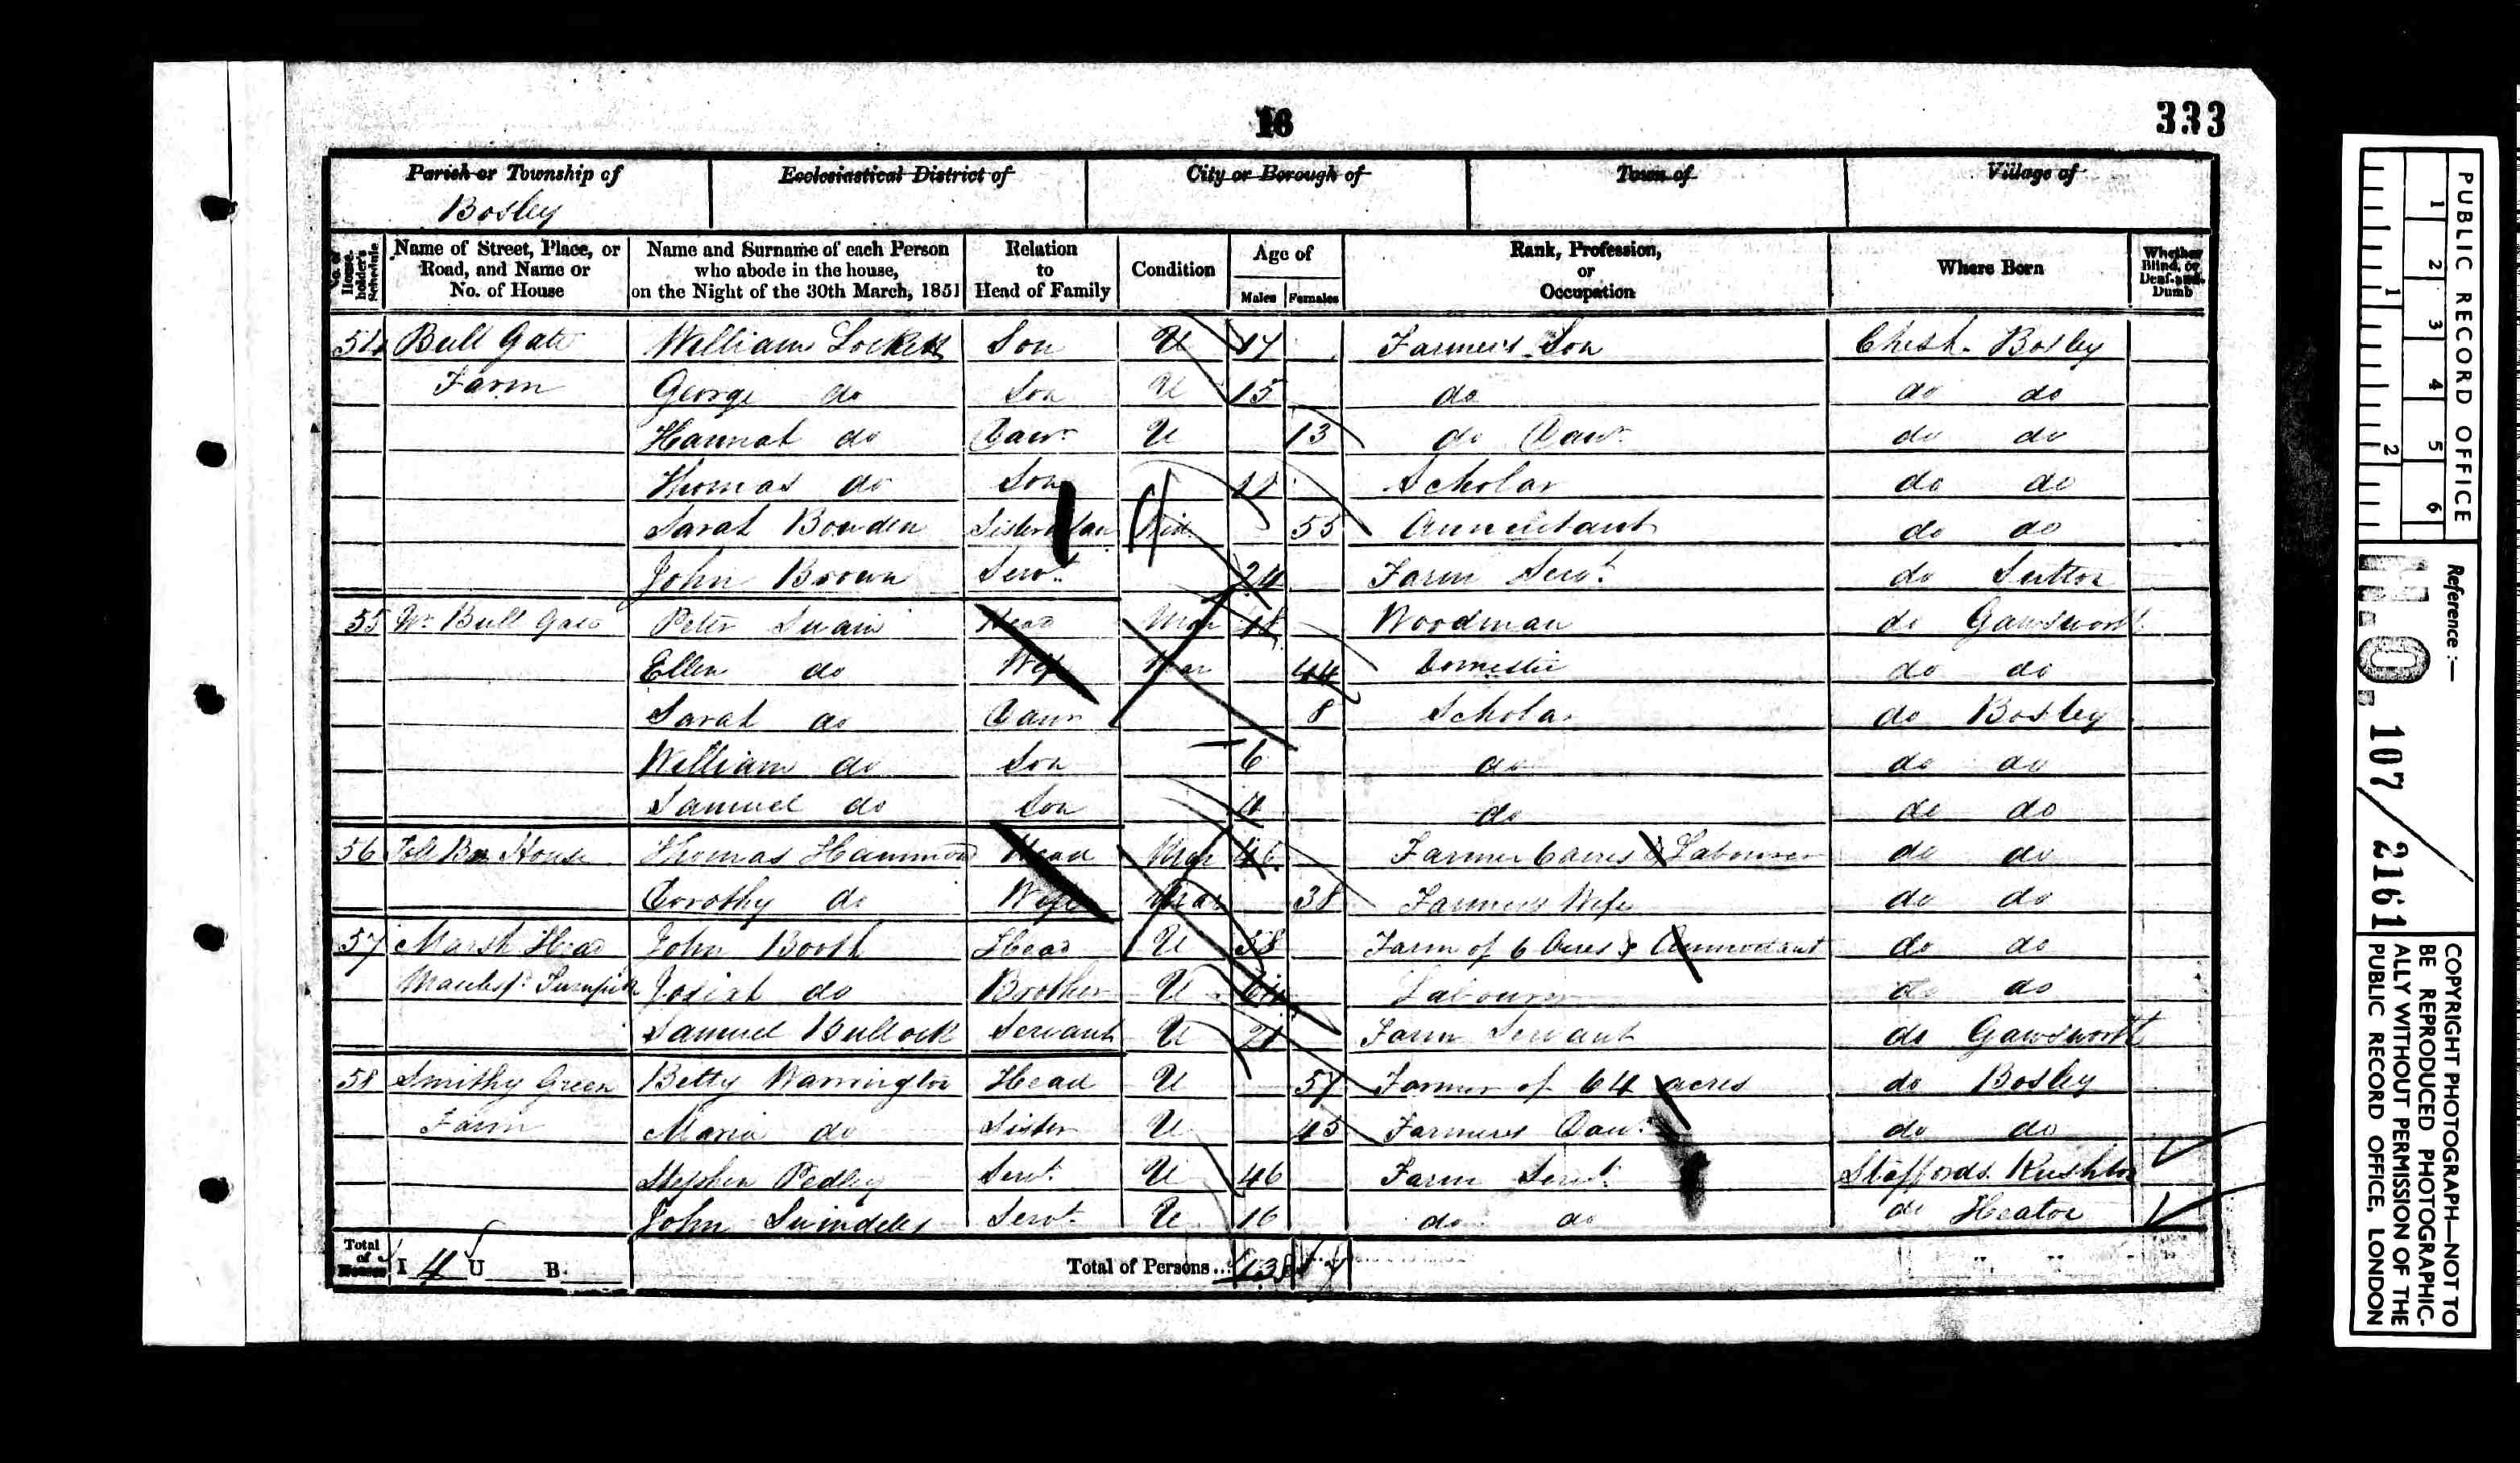 16
333
Parish or Township of
Bosley
Ecclesiastical District of
City or Borough of
Town of
Village of
No. of House-holder's Schedule
Name of Street, Place, or Road, and Name or No. of House
Name and Surname of each Person who abode in the house, on the Night of the 30th March, 1851
Relation to Head of Family
Condition
Age of
Males
Females
Rank, Profession, or Occupation
Where Born
Whether Blind, or Deaf-and-Dumb
54 Bull Gate William Lockett Son U 17 Farmer's Son Chesh. Bosley
Farm George do Son U 15 do do do
Hannah do Daur U 13 do Daur do do
Thomas do Son 11 Scholar do do
Sarah Bowden Sister Law Wid. 55 Annuitant do do
John Brown Servt. 24 Farm Servt. do Sutton
55 Nr. Bull Gate Peter Swain Head Mar 48 Woodman do Gawsworth
Ellen do Wife Mar 44 Domestic do do
Sarah do Daur 8 Scholar do Bosley
William do Son 6 do do do
Samuel do Son 4 do do do
56 Toll Bar House Thomas Hammond Head Mar 46 Farmer 6 acres & Labourer do do
Dorothy do Wife Mar 38 Farmers Wife do do
57 Marsh Head John Booth Head U 58 Farm of 6 Acres & do do
Turnpike Josiah do Brother U Labourer do do
Samuel Bullock Servant U 21 Farm Servant do Gawsworth
58 Smithy Green Betty Warrington Head U 57 Farmer of 64 acres do Bosley
Farm Maria do Sister U 45 Farmers Daur. do do
Stephen Pedley Servt. U 46 Farm Servt. Staffords. Rushton
John Swindells Servt. U 16 do do do Heaton
Total of Houses I 4 U B
Total of Persons... 13
PUBLIC RECORD OFFICE
1 2 3 4 5 6
1 2
Reference:—
H.O. 107/2161
COPYRIGHT PHOTOGRAPH—NOT TO
BE REPRODUCED PHOTOGRAPHIC-
ALLY WITHOUT PERMISSION OF THE
PUBLIC RECORD OFFICE, LONDON